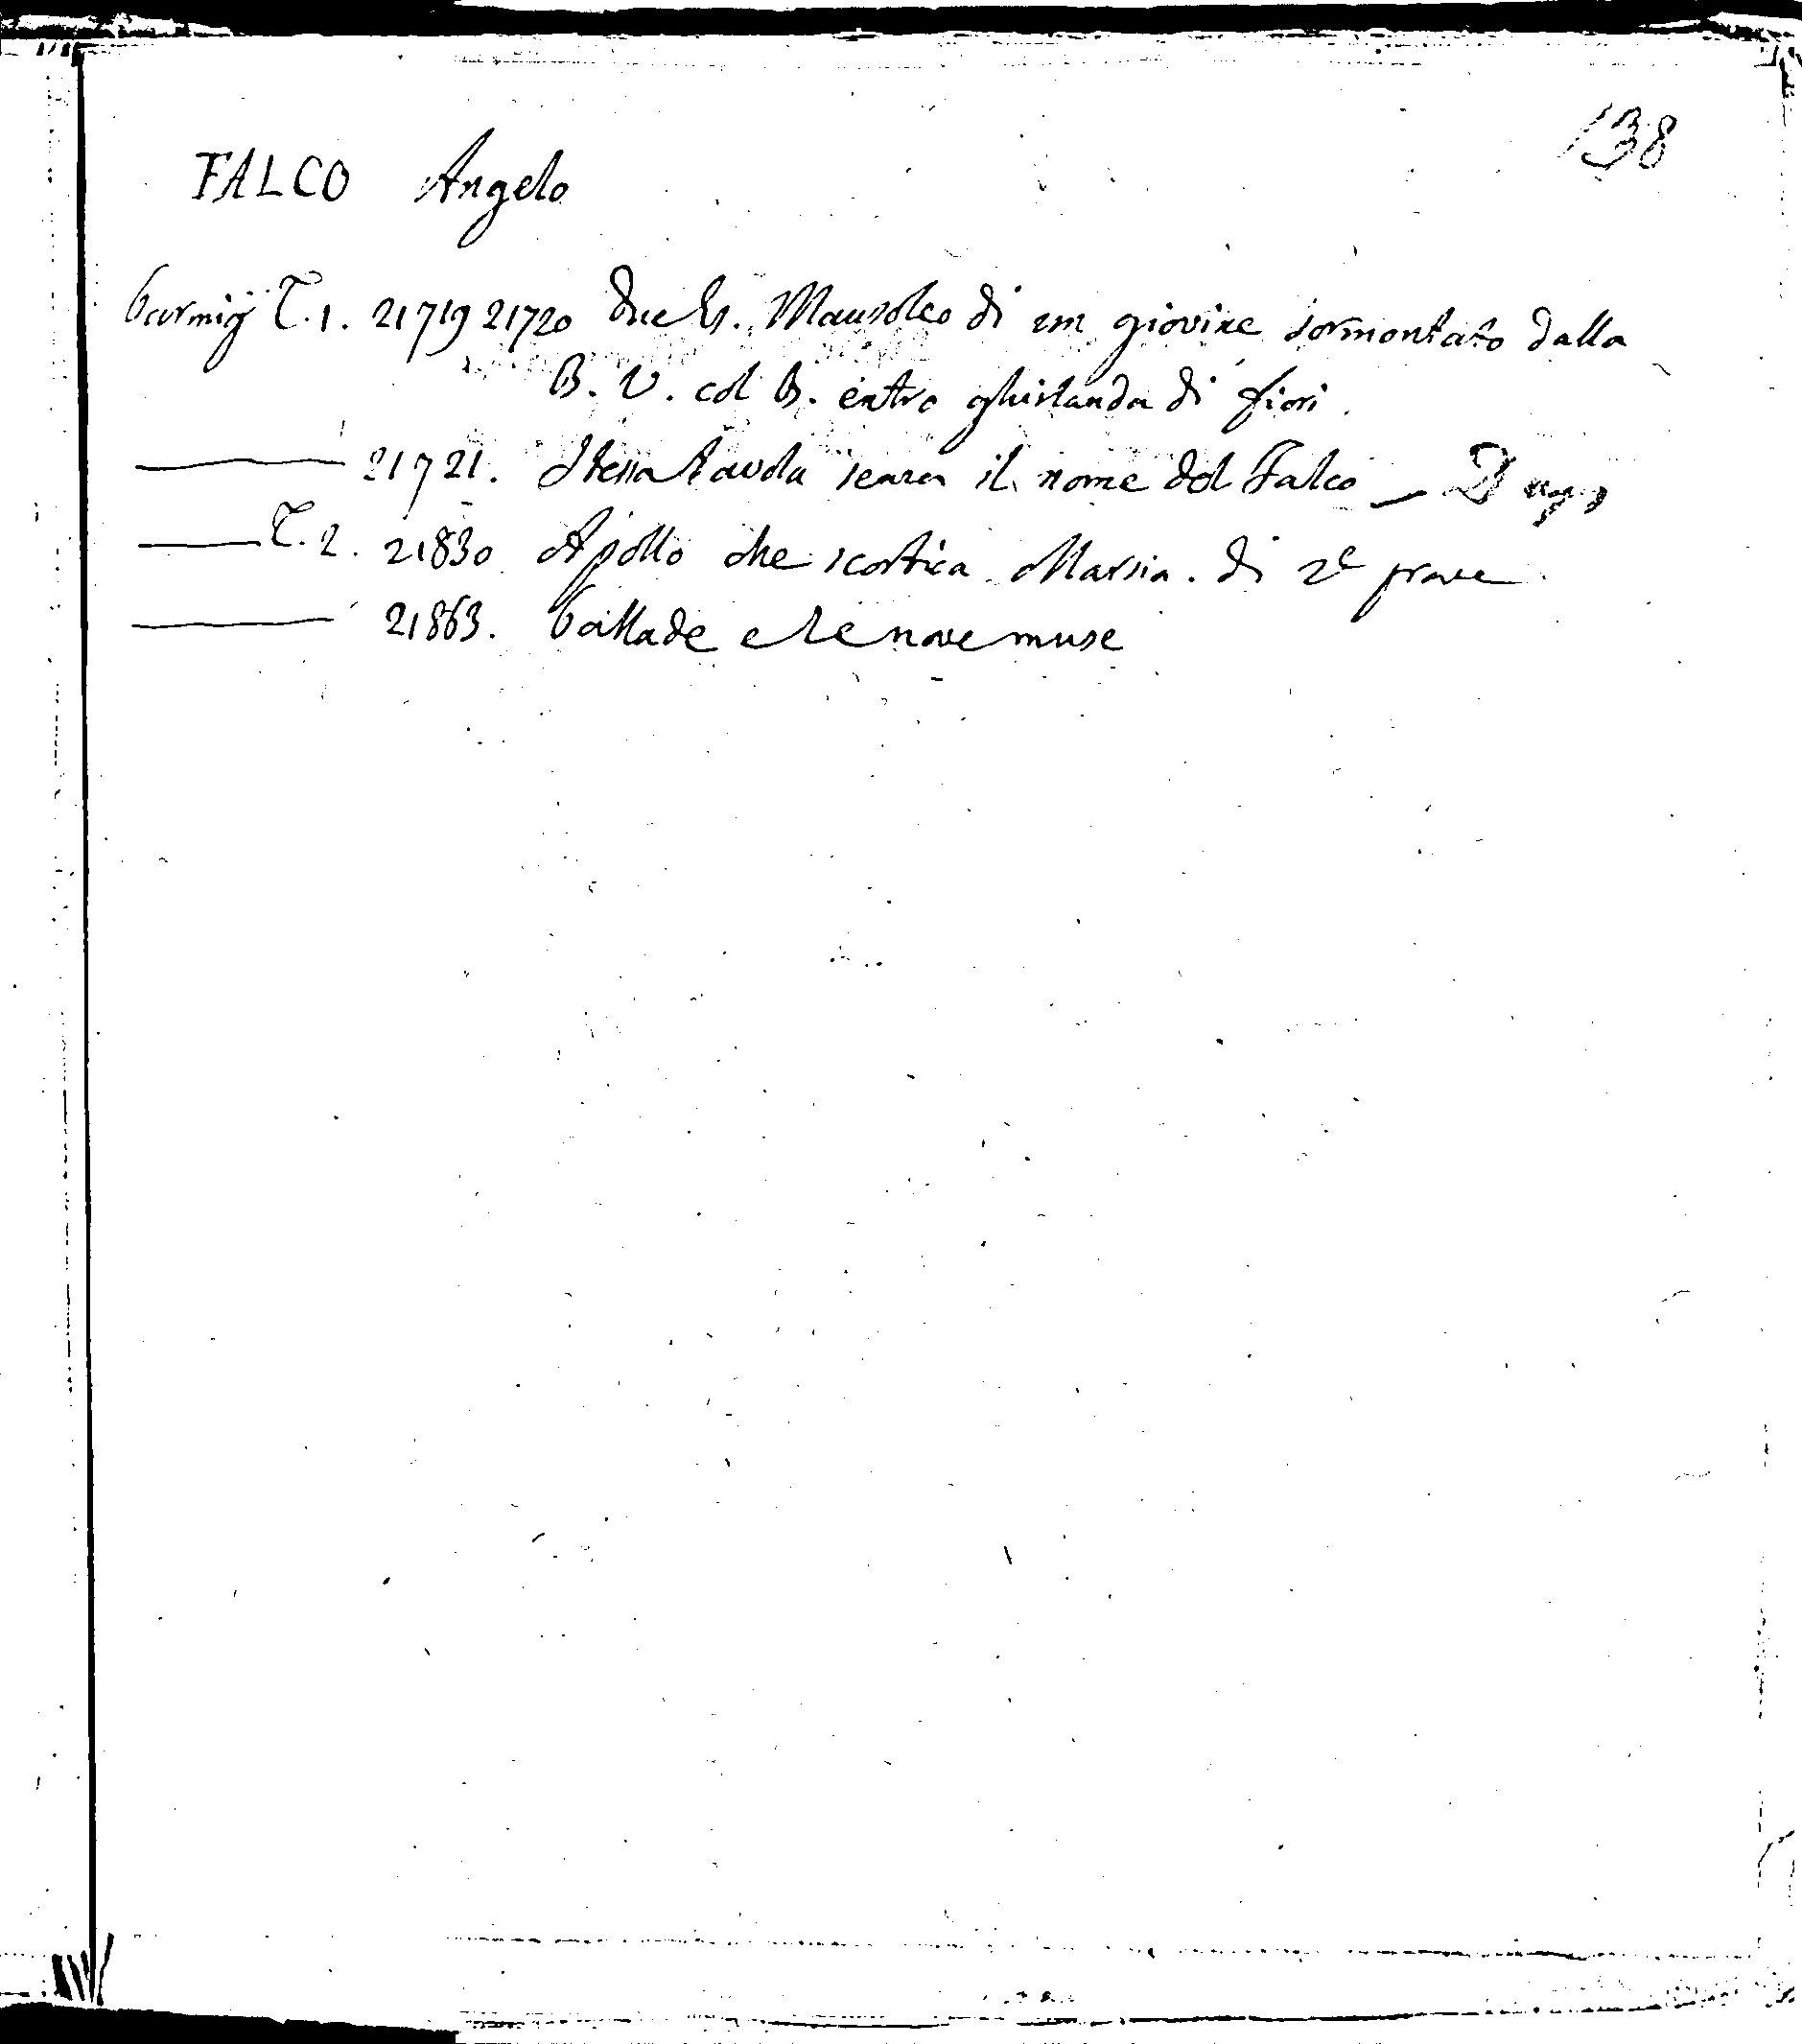 138
FALCO Angelo
Parmig T. 1. 21719 21720 due Es. Mausoleo di un giovine sormontato dalla
B. V. col B. entro ghirlanda di fiori.
21721. Stessa tavola senza il nome del Falco _ D
T. 2. 21830 Apollo che scortica Marsia. di 2e prove
21863. Pallade e le nove muse